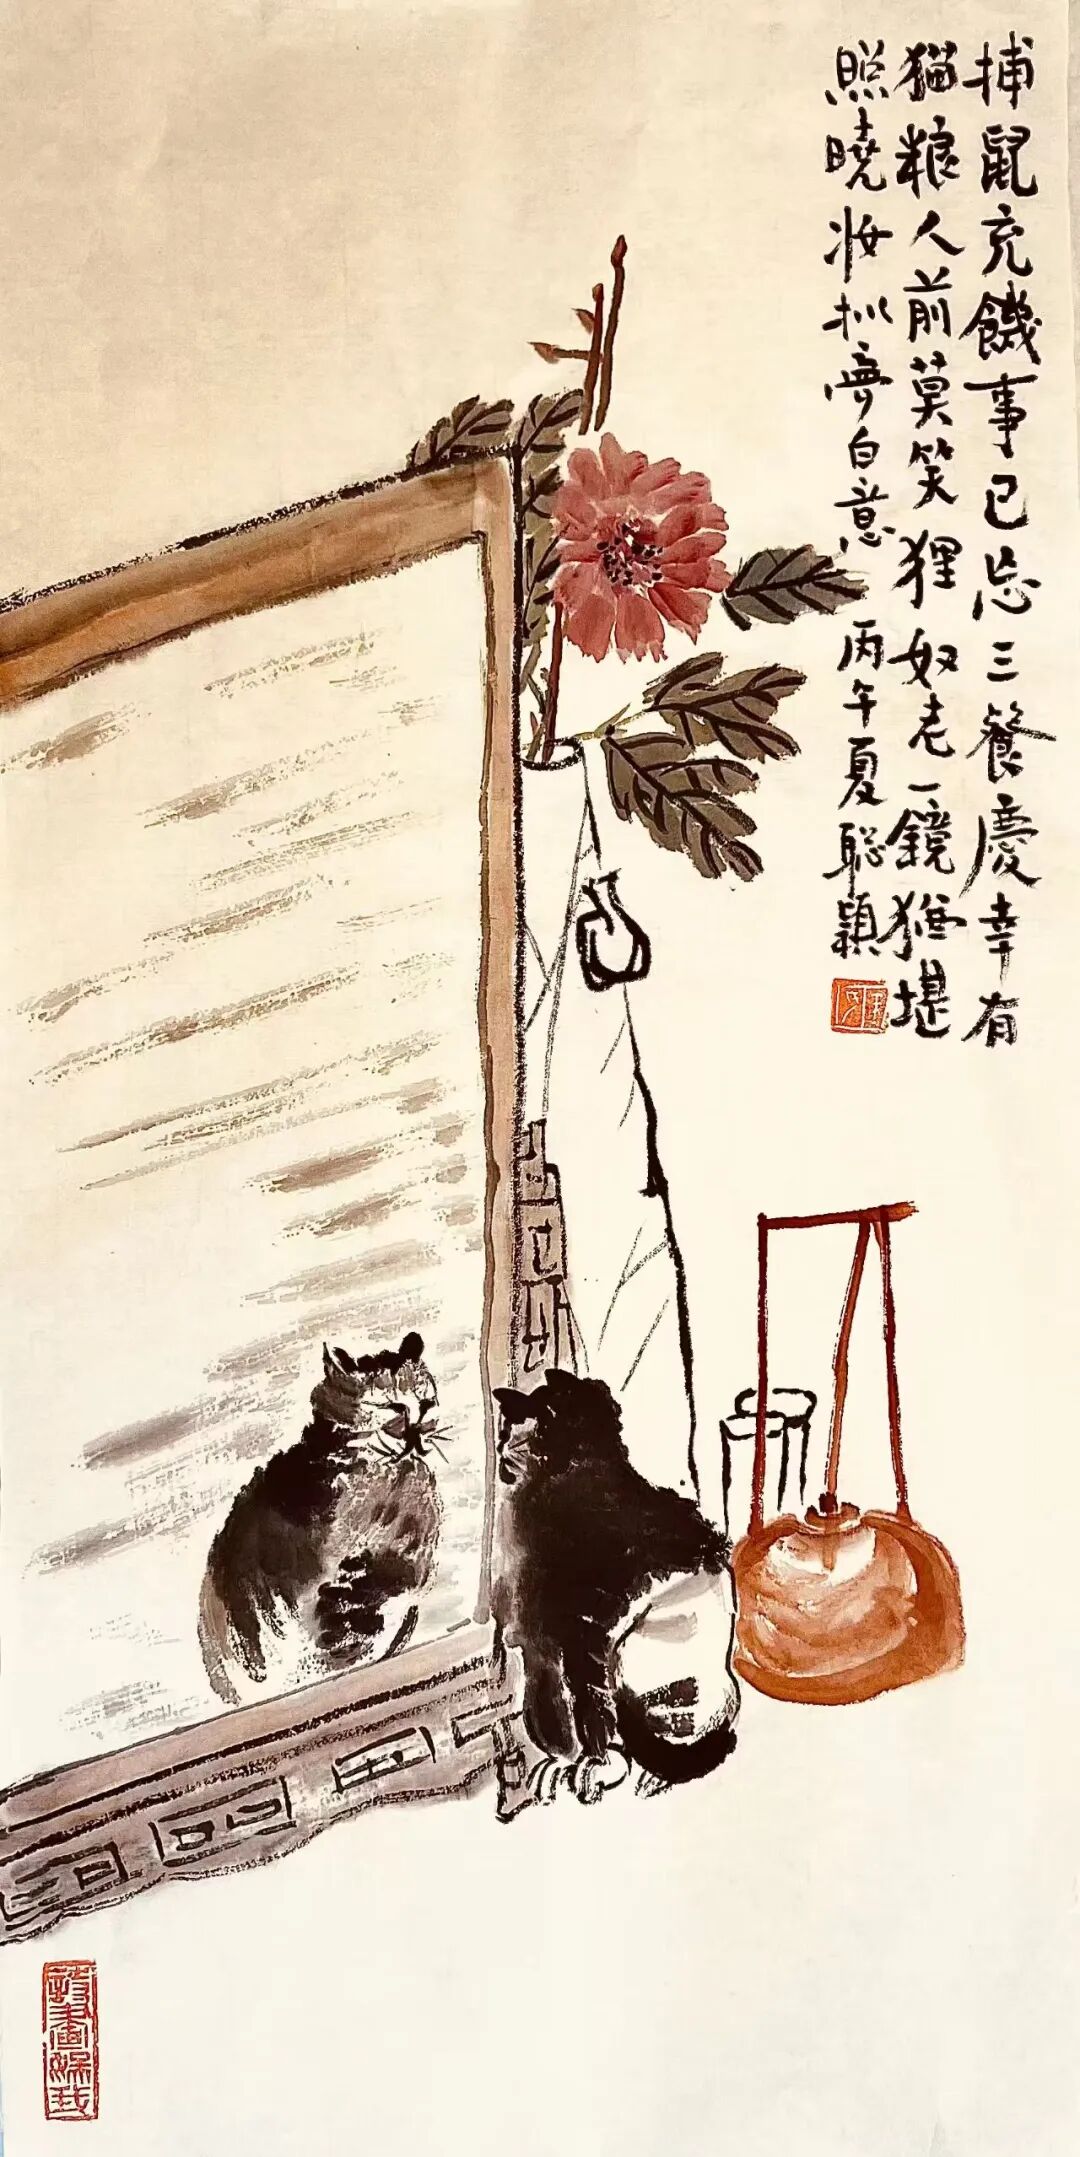 捕鼠充饑事已忘三餐慶幸有
猫粮人前莫笑狸奴老一鏡猶堪
照曉妝拟夢白意 丙午夏 聪颖